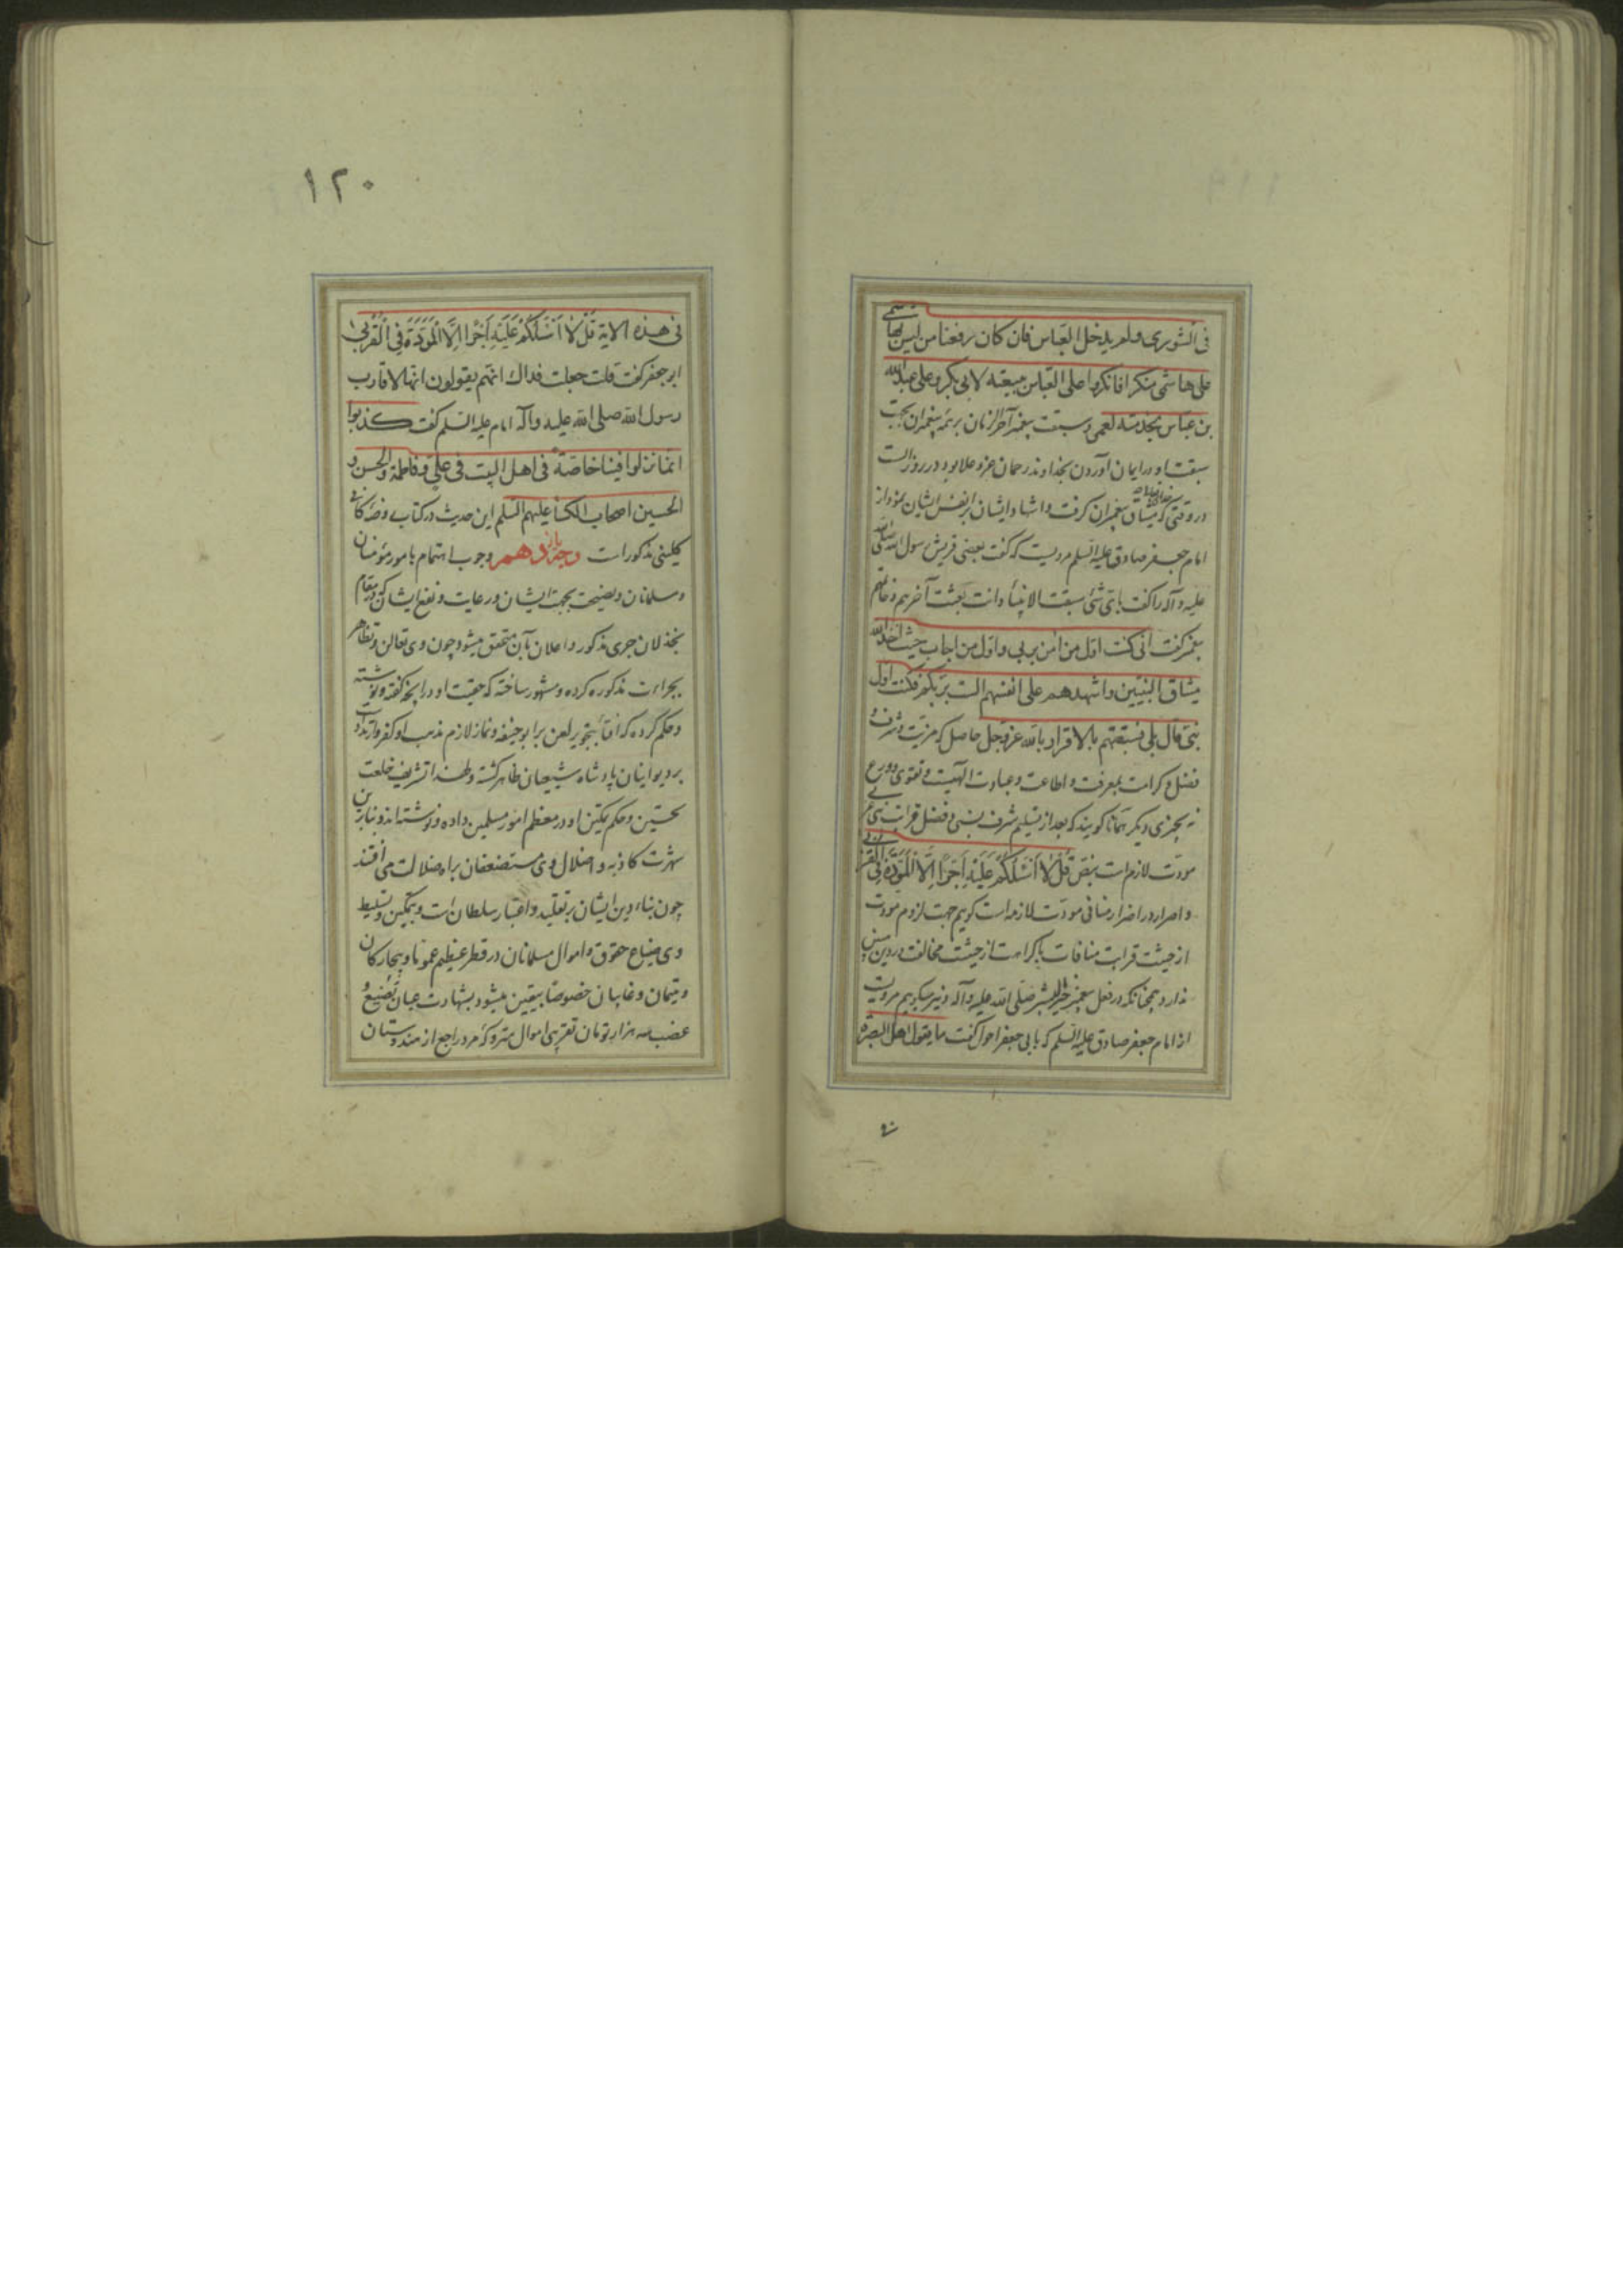 فی الشوری ولم یدخل العباس فان کان رفعنا من لیس بهاشمی
علی هاشمی منکرا فانکروا علی العباس بیعته لابی بکر وعلی عبدالله
بن عباس بخدمته لعمر وسبقت پیغمبر آخر الزمان بر همه پیغمبران بجهت
سبقت او در ایمان آوردن بخداوند رحمان عز و علا بود در روز الست
در وقتی که میثاق پیغمبران گرفت و اشهاد ایشان بر انفس ایشان نمود از
امام جعفر صادق علیه السلم مرویست که گفت بعضی قریش رسول الله صلی الله
علیه و آله را گفت بای شئ سبقت الانبیاء وانت بعثت آخرهم وخاتمهم
پیغمبر گفت انی کنت اول من امن بربی واول من اجاب حیث اخذ الله
میثاق النبیین واشهدهم علی انفسهم الست بربکم فکنت اول
نبی قال بلی فسبقتهم بالاقرار بالله عز وجل حاصل که مزیت و شرف و
فضل و کرامت بمعرفت و اطاعت و عبادت الهیست و تقوی و ورع
نه بچیزی دیگر همانا گویند که بعد از تسلیم شرف نسبی و فضل قرابت نبی
مودت لازمست بنص قُلْ لا أسْئَلُکُمْ عَلَیْهِ أجْرًا إلّا الْمَوَدَّةَ فِی الْقُرْبی
و اصرار در اضرار منافی مودت لازمه است گویم جهت لزوم مودت
از حیثت قرابت منافات با کراهت از حیثت مخالفت در دین
ندارد همچنانکه در فعل پیغمبر خیر البشر صلی الله علیه و آله و نیز میگویم مرویست
از امام جعفر صادق علیه السلم که بابی جعفر احول گفت ما یقول اهل البصرة
فی
۱۲۰
فی هذه الایة قُلْ لا أسْئَلُکُمْ عَلَیْهِ أجْرًا إلَّا الْمَوَدَّةَ فِی الْقُرْبی
ابو جعفر گفت قلت جعلت فداك انهم یقولون انها لاقارب
رسول الله صلی الله علیه واآله امام علیه السلم گفت کذبوا
انما نزلوا فینا خاصة فی اهل البیت فی علی وفاطمة والحسن و
الحسین اصحاب الکسا علیهم السلم این حدیث در کتاب روضه کافی
کلینی مذکور است وجه یازدهم وجوب اهتمام بامور مؤمنان
و مسلمانان و نصیحت بجهت ایشان و رعایت و نفع ایشان که در مقام
بخذلان جری مذکور و اعلان بآن متحقق میشود چون وی تعالن و تظاهر
بجراءت مذکوره کرده و مشهور ساخته که حقیت او در آنچه گفته و نوشته
و حکم کرده که افتا بتجویز لعن بر ابو حنیفه و نماز لازم مذهب او کفر و ارتداد
بر دیوانیان پادشاه شیعیان ظاهر گشته و لهذا تشریف خلعت
تحسین و حکم تمکین او در معظم امور مسلمین داده و نوشته اند و بنابرین
شهرت کاذبه و اضلال وی مستضعفان براه ضلالت می افتند
چون بناء دین ایشان بر تقلید و اعتبار سلطان است و بتمکین و تسلیط
وی ضیاع حقوق و اموال مسلمانان در قطر عظیم عموما و بیچارگان
و یتیمان و غایبان خصوصا بیقین میشود بشهادت عیان تضییع و
غضب سه هزار تومان تقریبی اموال متروکه مرد راجع از هندوستان